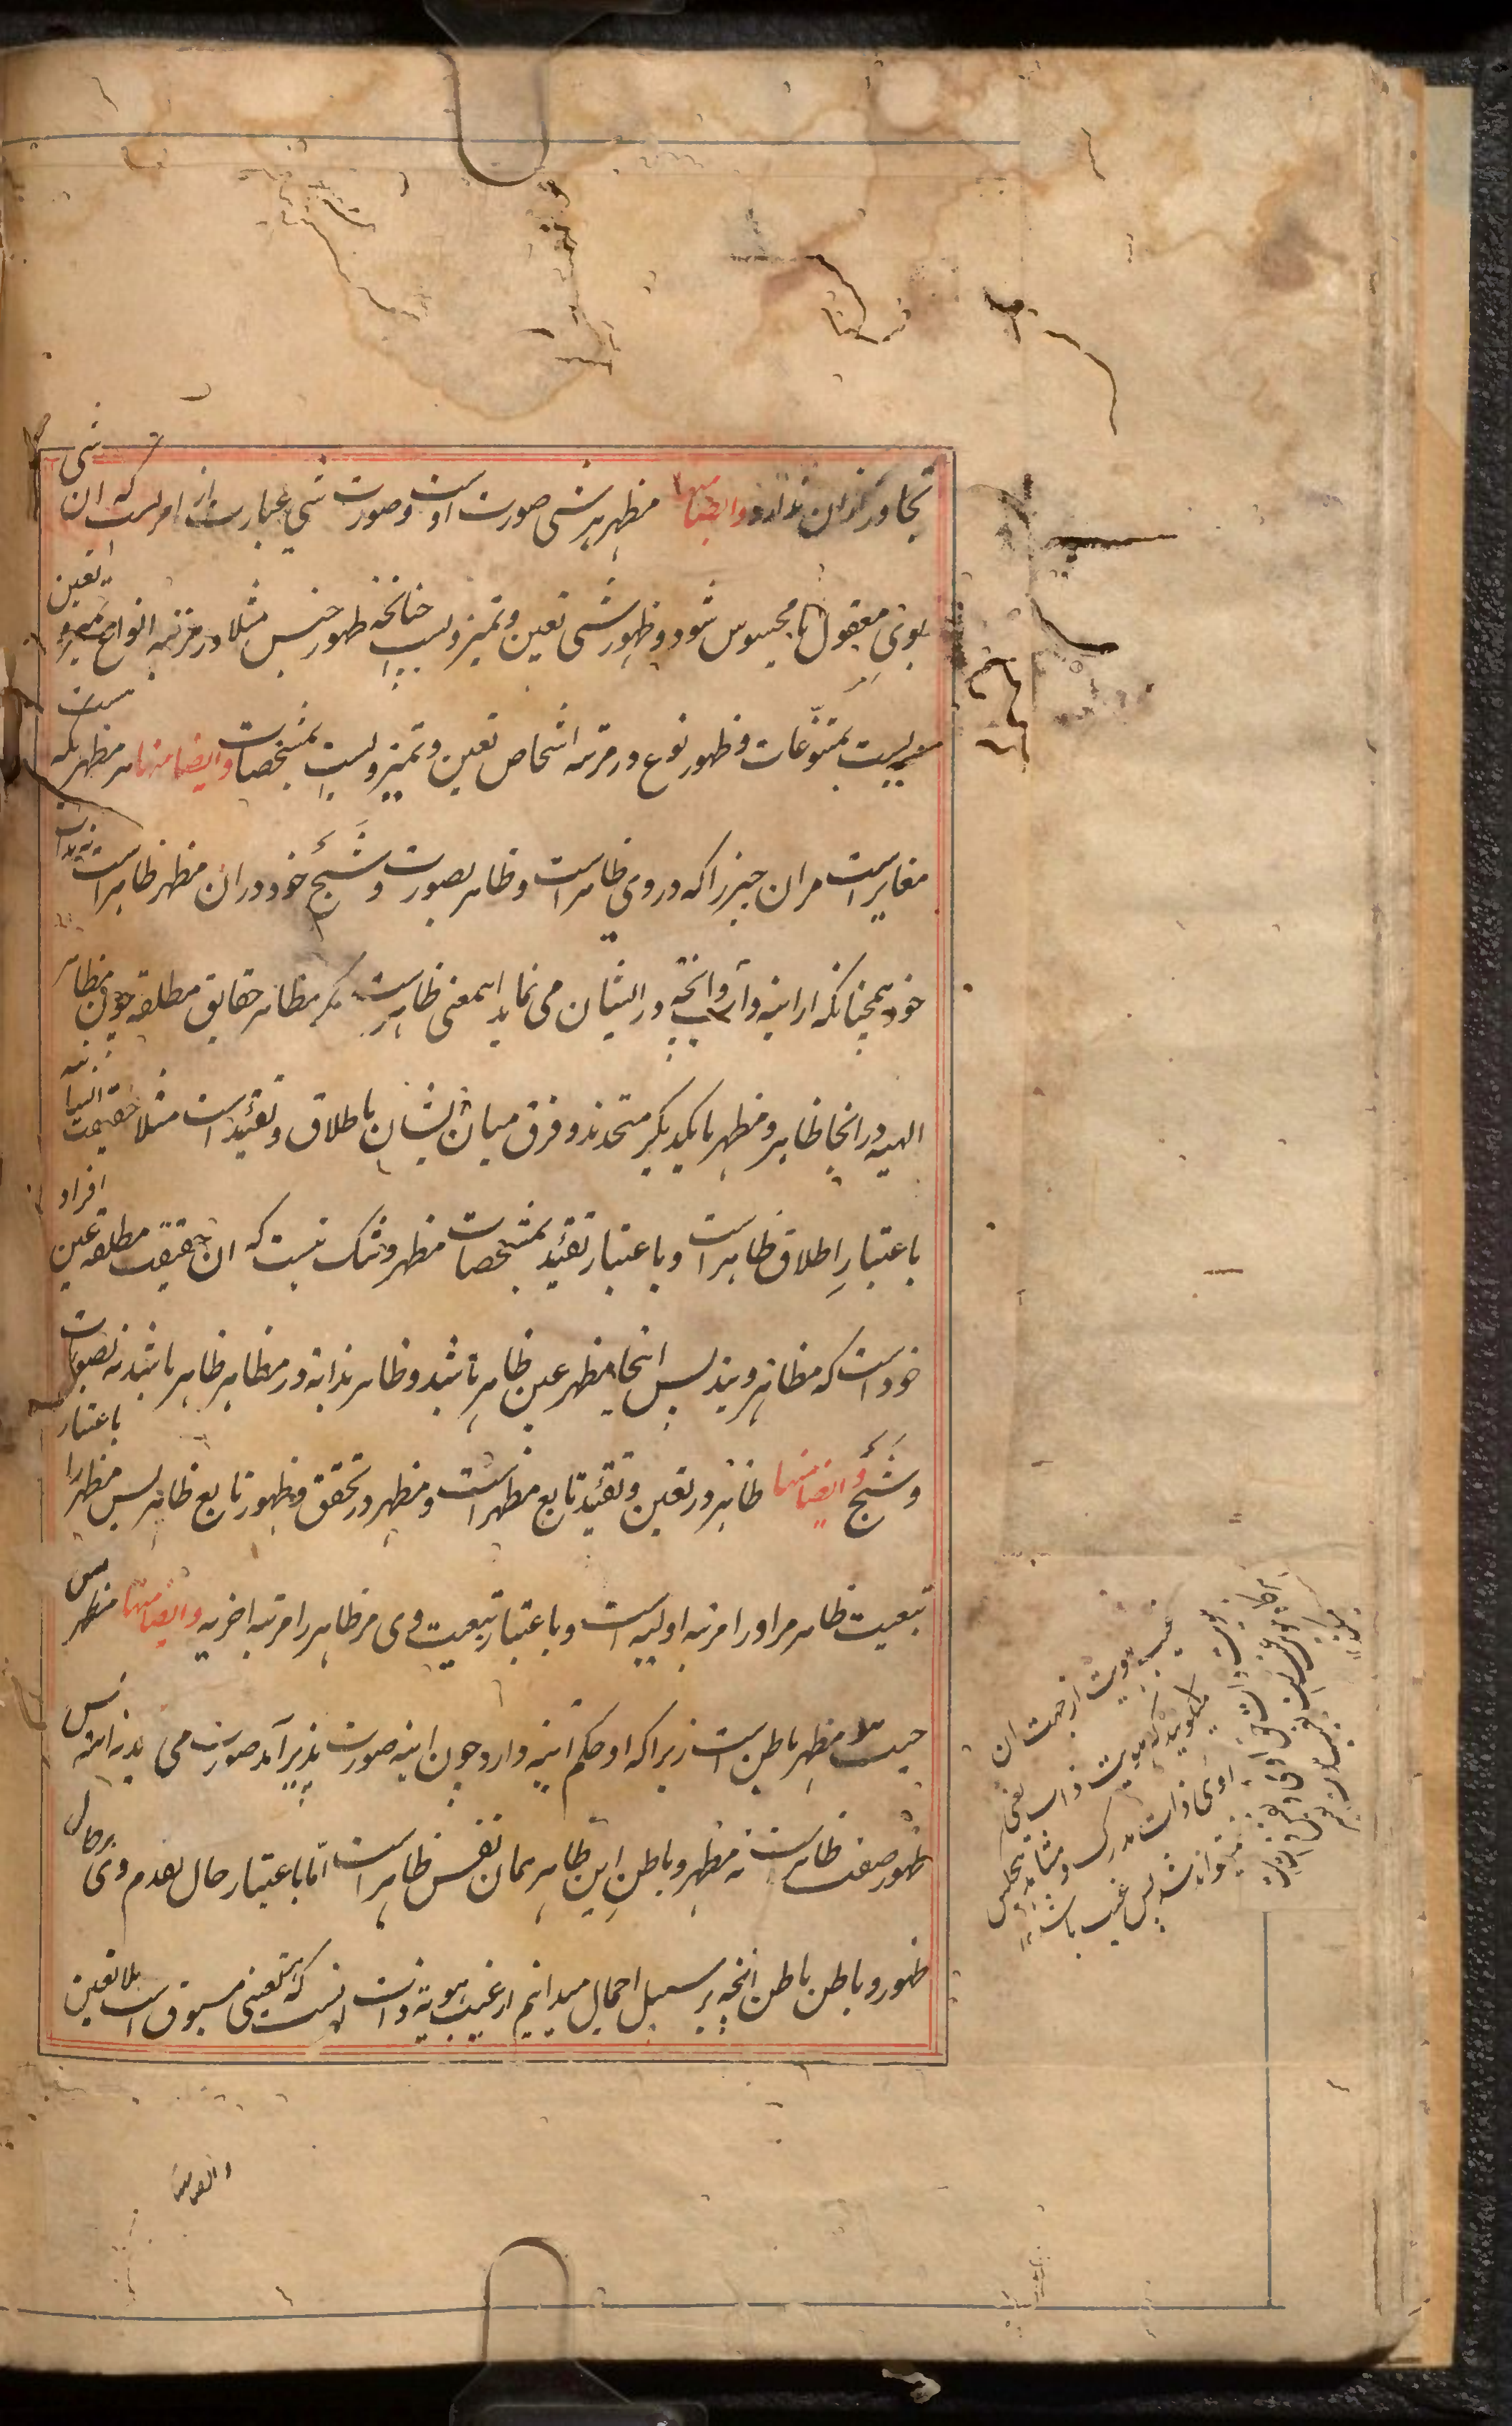 تجاوز ازان ندارد وایضا منها مظهر هر شی صورت اوست و صورت شی عبارت از امریست که ان شی
بوی معقول یا محسوس شود و ظهور شی تعین و تمیز ویست چنانچه ظهور جنس مثلا در مرتبه انواع تعین و تمیز
ویست بمنوّعات و ظهور نوع در مرتبه اشخاص تعین و تمیز ویست بمشخصات وایضا منها هر مظهر که هست
مغایرست مران چیز را که در وی ظاهرست و ظاهر بصورت و شبح خود دران مظهر ظاهرست نه بذات
خود همچنانکه از اینه و آب و انچه در ایشان می نماید اینمعنی ظاهرست مگر مظاهر حقایق مطلقه چون مظاهر
الهیه در انجا ظاهر و مظهر با یکدیگر متحدند و فرق میان ایشان باطلاق و تقیّدست مثلا حقیقت انسانیه
باعتبارِ اطلاق ظاهرست و باعتبار تقیّد بمشخصات مظهر و شک نیست که ان حقیقت مطلقه عین افراد
خودست که مظاهر ویند پس انجا مظهر عین ظاهر باشد و ظاهر بذاته در مظاهر ظاهر باشد نه بصورت
و شبح وایضا منها ظاهر در تعین و تقیّد تابع مظهرست و مظهر در تحقق و ظهور تابع ظاهر پس مظهر را باعتبار
تبعیت ظاهر مر او را مرتبه اولیه است و باعتبار تبعیت وی مر ظاهر را مرتبه اخریه وایضا منها مظهر من
حیث هو مظهر باطن است زیرا که او حکم اینه دارد چون اینه صورت پذیر آمد صورت می بیند نه اینه پس
ظهور صفت ظاهرست نه مظهر و باطن این ظاهر همان نفس ظاهرست امّا باعتبار حال تقدم وی بر حال
ظهور و باطن باطن انچه بر سبیل اجمال میدانیم از غیب هویة ذات انست که متعینی مسبوق است بلا تعین
غیب هویت از جهت ان
میگویند که هویت ذات یعنی
اوی ذات مدرک و مشاهد هیچکس
نتواند شد پس غیب باشد